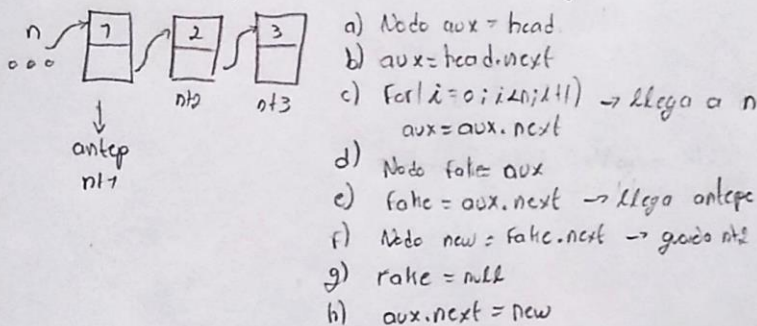 n 1 2 3
n+2 n+3
antep
n+1
a) Nodo aux = head
b) aux = head.next
c) For(i=0; i<n; i++) → llega a n
aux = aux.next
d) Nodo fake = aux
e) fake = aux.next → llega antepe
f) Nodo new = fake.next → guardo n+2
g) fake = null
h) aux.next = new